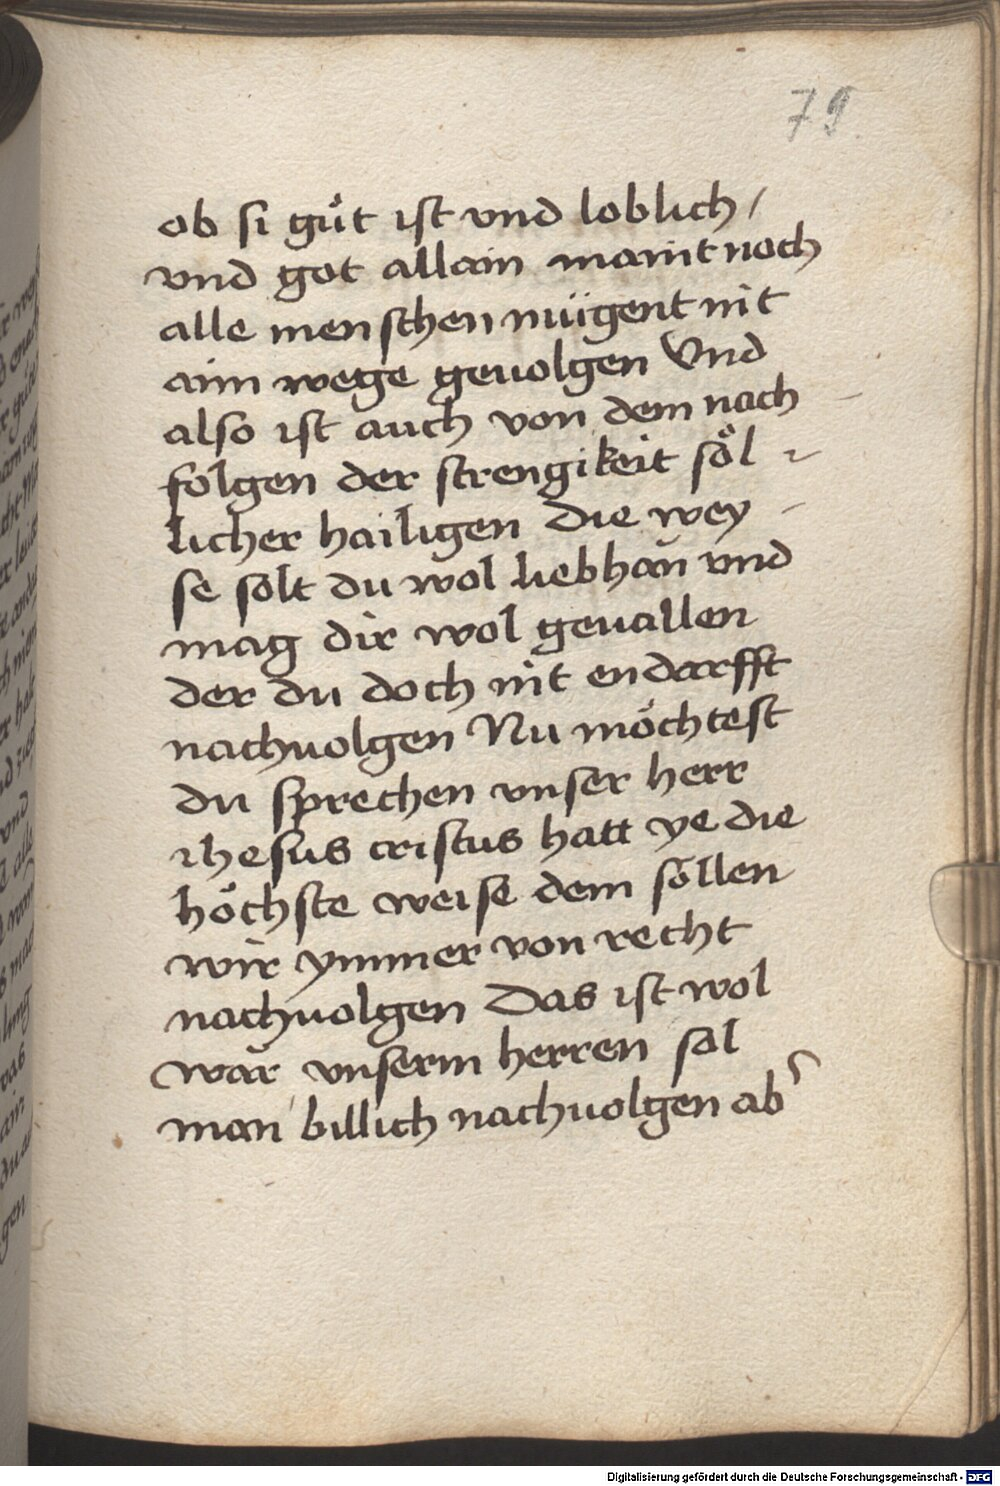 79
ob si guͦt ist vnd loblich /
vnd got allain maint noch
alle menschen mügent nit
ainn wege geuolgen Vnd
also ist auch von dem nach
folgen der strengikeit soͤl -
licher hailigen die wey -
se solt du wol liebhan vnd
mag dir wol geuallen
der du doch nit endarfft
nachuolgen Nu moͤchtest
du sprechen vnser herr
ihesus cristus hatt ye die
hoͤchste weise dem soͤllen
wir ymmer von recht
nachuolgen Das ist wol
war vnserm herren sol
man billich nachuolgen abʾ
Digitalisierung gefördert durch die Deutsche Forschungsgemeinschaft - DFG